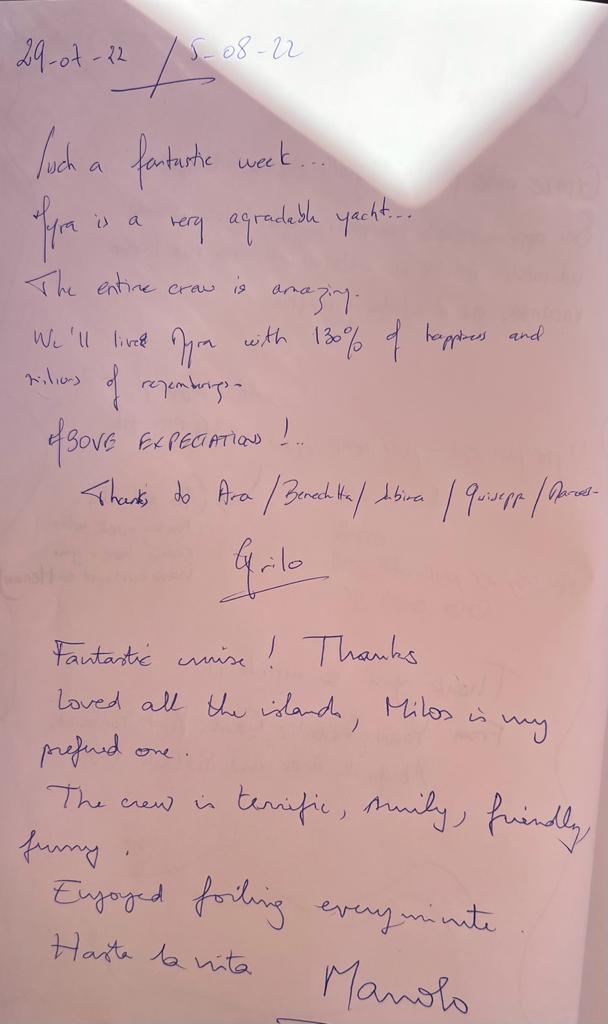 29-07-22 / 5-08-22
Such a fantastic week...
is a very agradable yacht...
The entire crew is amazing.
We'll with 130% of happiness and
of
ABOVE EXPECTATIONS !..
Thanks do Ara / Benedetta / / /
Grilo
Fantastic cruise ! Thanks
Loved all the islands, Milos is my
prefered one.
The crew is terrific, smily, friendly,
funny.
Enjoyed foiling every minute.
Hasta la vista
Manolo